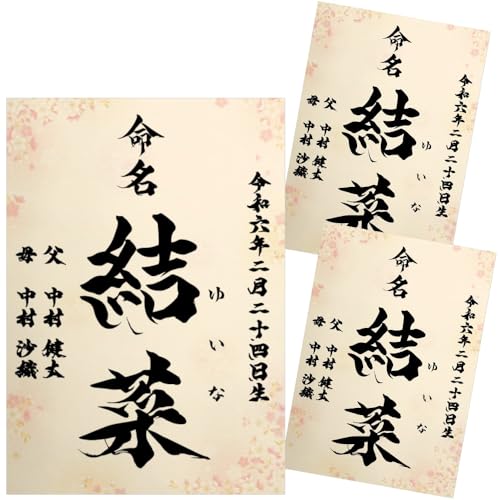 命名
令和六年二月二十四日生
ゆいな
結菜
父 中村 健太
母 中村 沙織
命名
令和六年二月二十四日生
ゆいな
結菜
父 中村 健太
母 中村 沙織
命名
令和六年二月二十四日生
ゆいな
結菜
父 中村 健太
母 中村 沙織